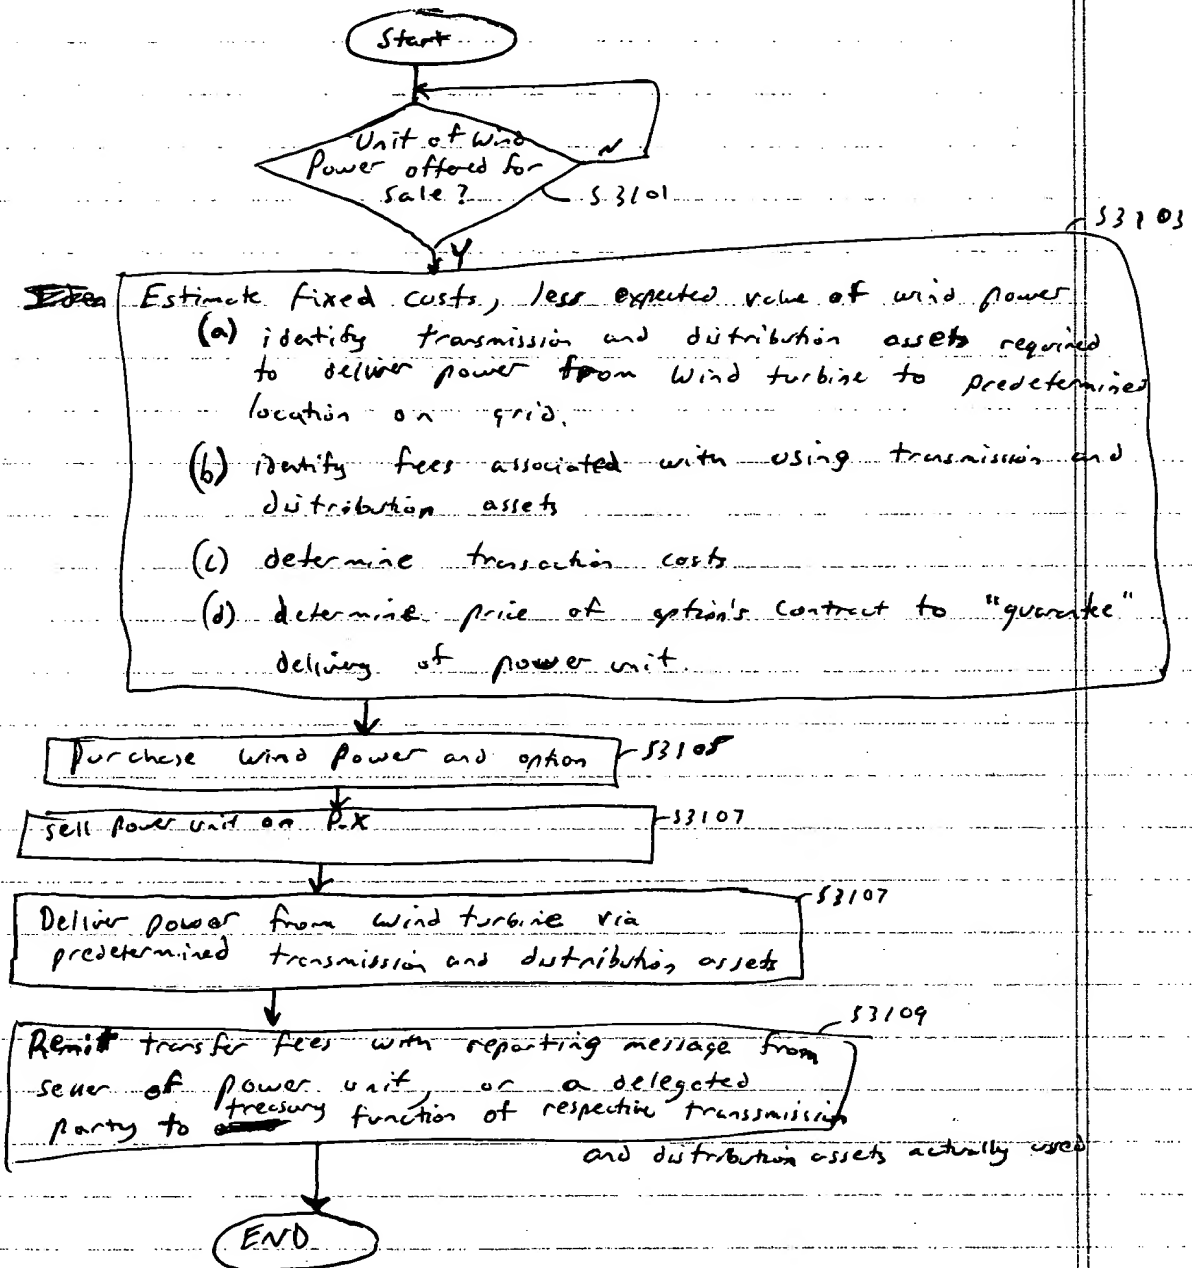 Start
Unit of Wind
Power offered for
Sale?
N
S3101
Y
S3103
Estimate fixed costs, less expected value of wind power
(a) identify transmission and distribution assets required
to deliver power from Wind turbine to predetermined
location on grid.
(b) identify fees associated with using transmission and
distribution assets
(c) determine transaction costs
(d) determine price of option's Contract to "guarantee"
delivery of power unit.
Purchase Wind Power and option
S3105
Sell Power unit on P.X
S3107
Deliver power from wind turbine via
predetermined transmission and distribution assets
S3107
Remit transfer fees with reporting message from
seller of power unit, or a delegated
party to treasury function of respective transsmission
and distribution assets actually used
S3109
END